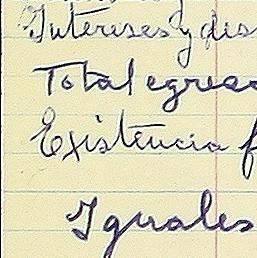 Intereses y dis
Total egresa
Existencia f
Iguales